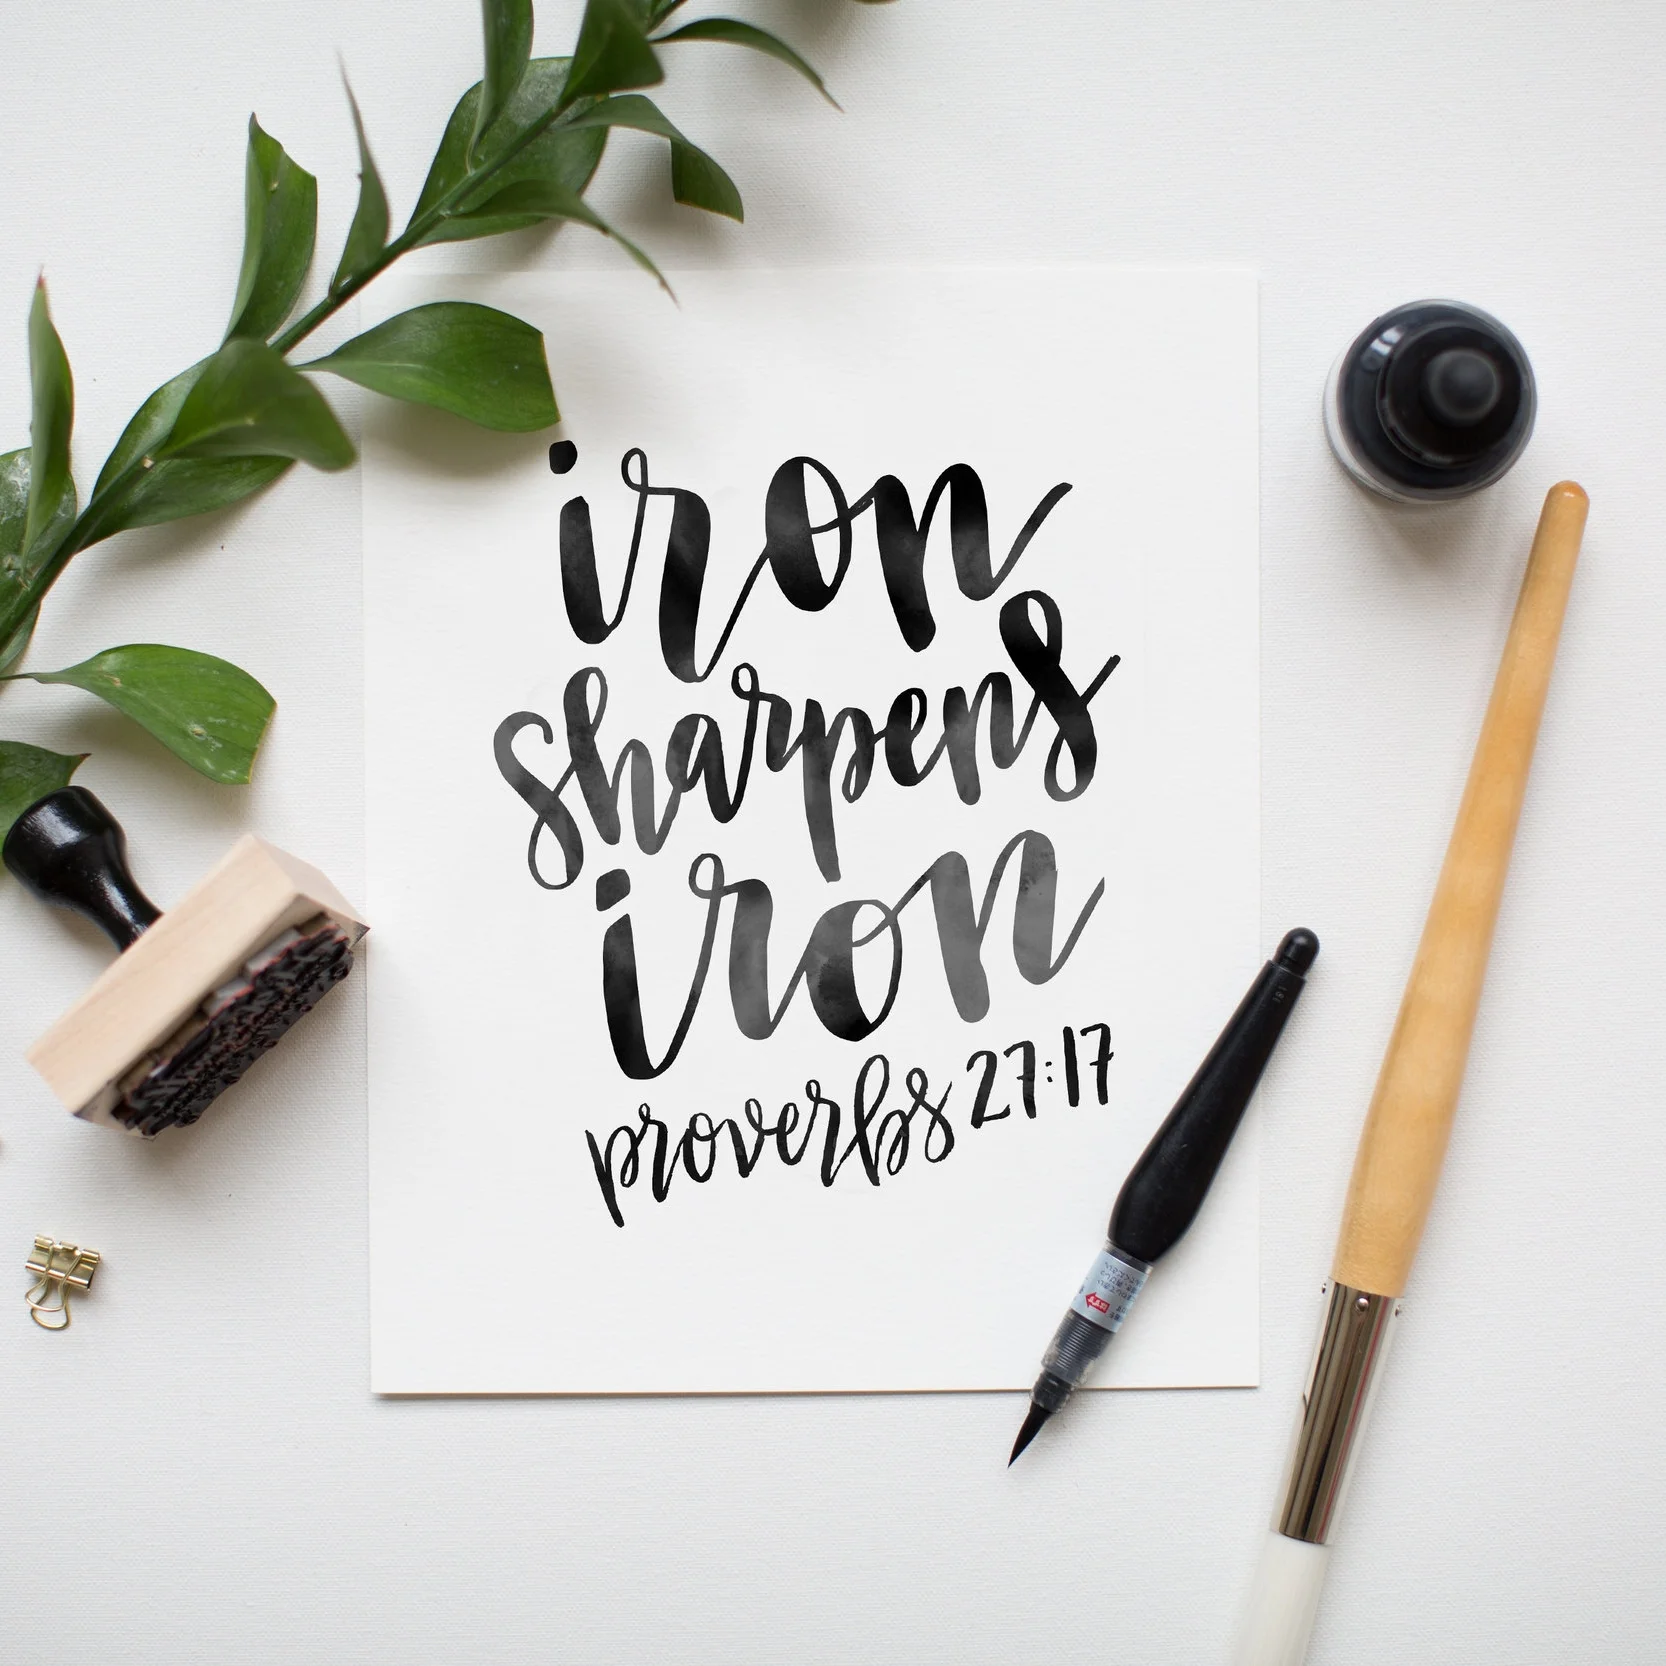 iron
sharpens
iron
proverbs 27:17